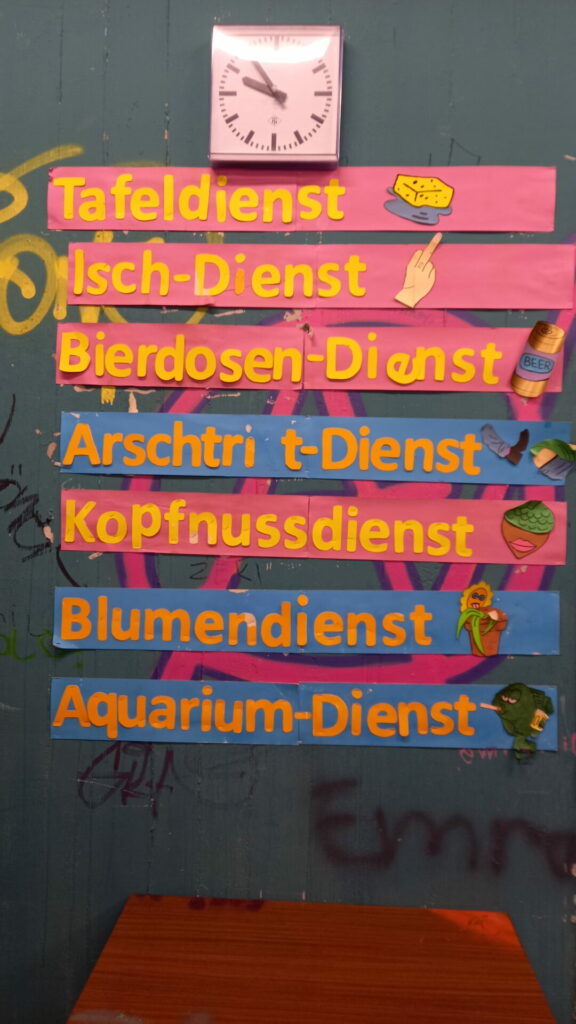 Tafeldienst
Isch-Dienst
Bierdosen-Dienst
BEER
Arschtri t-Dienst
Kopfnussdienst
Blumendienst
Aquarium-Dienst